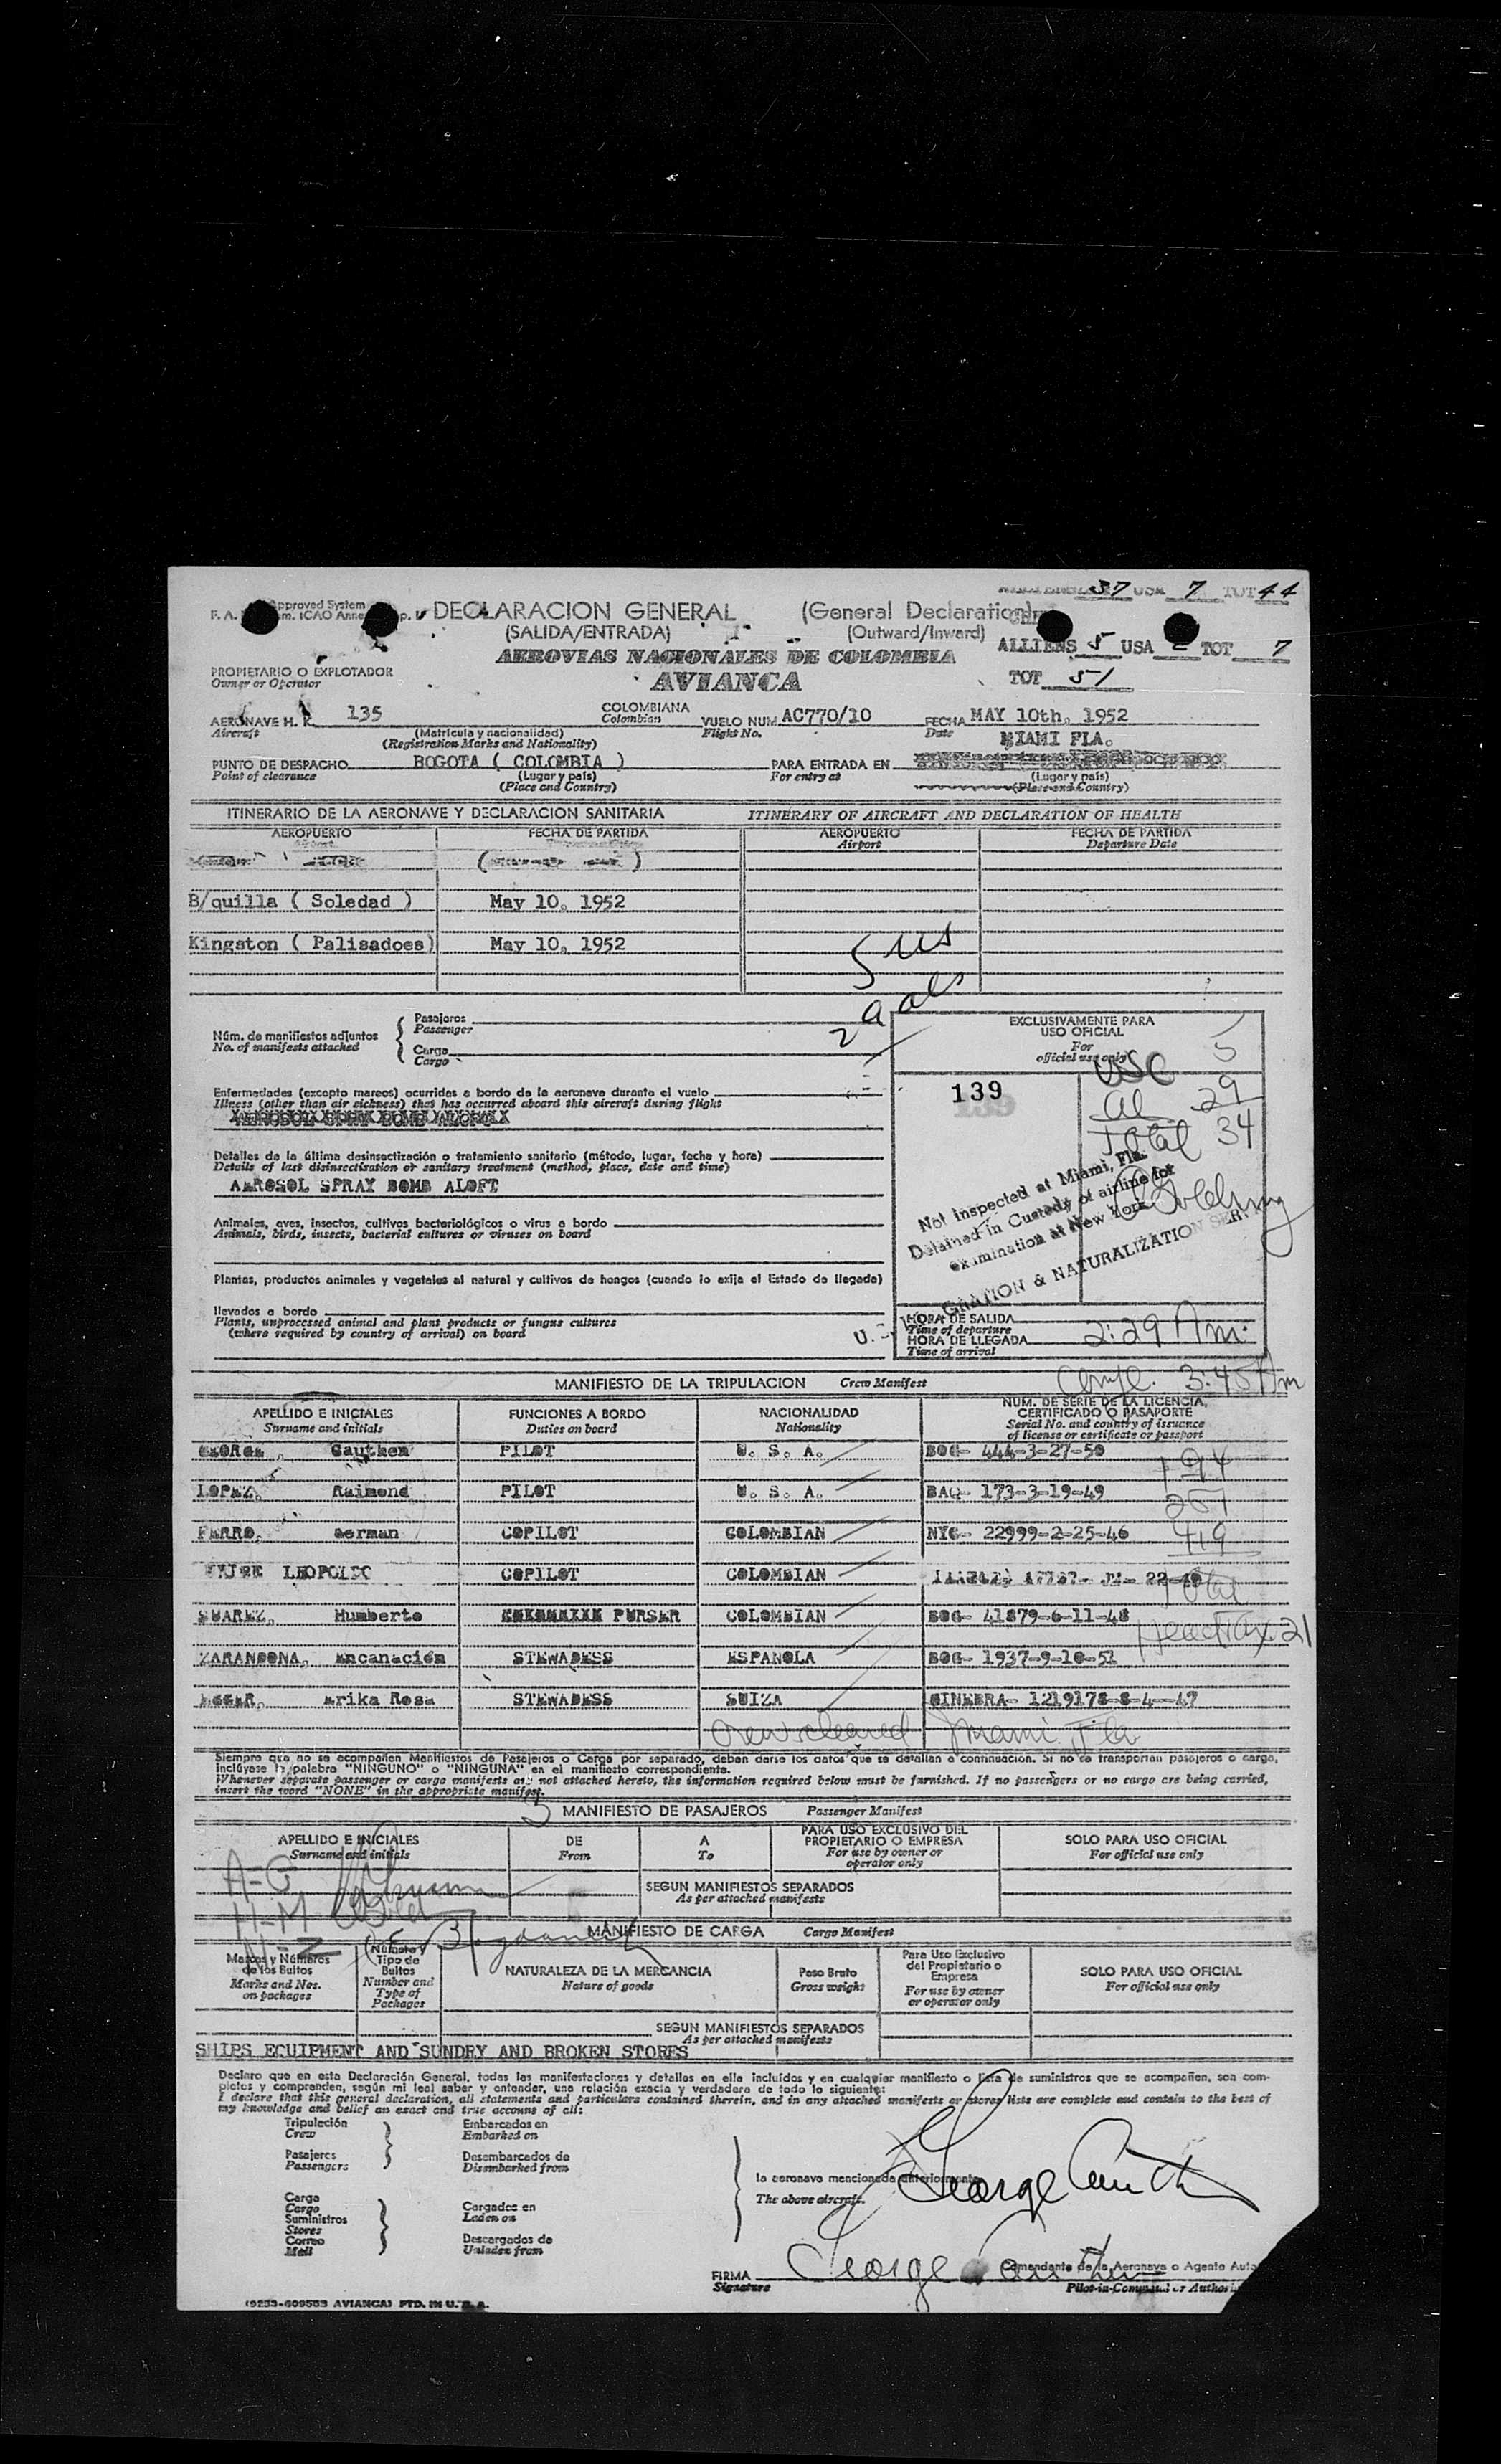 37 USA 7 TOT 44
F. A. pproved System
m. ICAO Anne p.
DECLARACION GENERAL (General Declaration)
(SALIDA/ENTRADA) (Outward/Inward)
ALLIENS 5 USA 2 TOT 7
AEROVIAS NACIONALES DE COLOMBIA
PROPIETARIO O EXPLOTADOR
Owner or Operator
AVIANCA
TOT 51
AERONAVE H. K. 135 COLOMBIANA VUELO NUM. AC770/10 FECHA MAY 10th, 1952
Aircraft (Matrícula y nacionalidad) Colombian Flight No. Date
(Registration Marks and Nationality) MIAMI FLA.
PUNTO DE DESPACHO BOGOTA ( COLOMBIA ) PARA ENTRADA EN
Point of clearance (Lugar y país) For entry at (Lugar y país)
(Place and Country) (Place and Country)
ITINERARIO DE LA AERONAVE Y DECLARACION SANITARIA ITINERARY OF AIRCRAFT AND DECLARATION OF HEALTH
AEROPUERTO FECHA DE PARTIDA AEROPUERTO FECHA DE PARTIDA
Airport Departure Date
B/quilla ( Soledad ) May 10, 1952
Kingston ( Palisadoes) May 10, 1952
5 us
29 als
Núm. de manifiestos adjuntos Pasajeros
No. of manifests attached Passenger
Carga
Cargo
EXCLUSIVAMENTE PARA
USO OFICIAL
For
official use only
USC 5
139
al 29
Total 34
Enfermedades (excepto mareos) ocurridas a bordo de la aeronave durante el vuelo
Illness (other than air sickness) that has occurred aboard this aircraft during flight
Detalles de la última desinsectización o tratamiento sanitario (método, lugar, fecha y hora)
Details of last disinsectisation or sanitary treatment (method, place, date and time)
AEROSOL SPRAY BOMB ALOFT
Not inspected at Miami, Fla.
Detained in Custody of airline for
examination at New York
GRATION & NATURALIZATION SERV
U. S.
Animales, aves, insectos, cultivos bacteriológicos o virus a bordo
Animals, birds, insects, bacterial cultures or viruses on board
Plantas, productos animales y vegetales al natural y cultivos de hongos (cuando lo exija el Estado de llegada)
llevados a bordo
Plants, unprocessed animal and plant products or fungus cultures
(where required by country of arrival) on board
HORA DE SALIDA
Time of departure
HORA DE LLEGADA 2:29 Am.
Time of arrival
Comp. 3:45 Am
MANIFIESTO DE LA TRIPULACION Crew Manifest
APELLIDO E INICIALES FUNCIONES A BORDO NACIONALIDAD NUM. DE SERIE DE LA LICENCIA, CERTIFICADO O PASAPORTE
Surname and initials Duties on board Nationality Serial No. and country of issuance of license or certificate or passport
GEORGE, Gauthem PILOT U. S. A. BOG- 444-3-27-50
LOPEZ, Raimond PILOT U. S. A. BAQ- 173-3-19-49
FERRO, German COPILOT COLOMBIAN NYC- 22999-2-25-46
LEOPOLDO COPILOT COLOMBIAN
SUAREZ, Humberto PURSER COLOMBIAN BOG- 41879-6-11-48
Head Tax 21
ZARANDONA, Encanación STEWADESS ESPANOLA BOG- 1937-9-10-51
EGGER, Erika Rosa STEWADESS SUIZA GINEBRA- 1219178-8-4--47
Crew cleared Miami Fla
Siempre que no se acompañen Manifiestos de Pasajeros o Carga por separado, deben darse los datos que se detallan a continuación. Si no se transportan pasajeros o carga,
inclúyase la palabra "NINGUNO" o "NINGUNA" en el manifiesto correspondiente.
Whenever separate passenger or cargo manifests are not attached hereto, the information required below must be furnished. If no passengers or no cargo are being carried,
insert the word "NONE" in the appropriate manifest.
3
MANIFIESTO DE PASAJEROS Passenger Manifest
APELLIDO E INICIALES DE A PARA USO EXCLUSIVO DEL PROPIETARIO O EMPRESA SOLO PARA USO OFICIAL
Surname and initials From To For use by owner or operator only For official use only
A-G
SEGUN MANIFIESTOS SEPARADOS
As per attached manifests
H-M
N-Z
MANIFIESTO DE CARGA Cargo Manifest
Marcas y Números de los Bultos Número y Tipo de Bultos NATURALEZA DE LA MERCANCIA Peso Bruto Para Uso Exclusivo del Propietario o Empresa SOLO PARA USO OFICIAL
Marks and Nos. on packages Number and Type of Packages Nature of goods Gross weight For use by owner or operator only For official use only
SEGUN MANIFIESTOS SEPARADOS
As per attached manifests
SHIPS EQUIPMENT AND SUNDRY AND BROKEN STORES
Declaro que en esta Declaración General, todas las manifestaciones y detalles en ella incluídos y en cualquier manifiesto o lista de suministros que se acompañen, son com-
pletos y comprenden, según mi leal saber y entender, una relación exacta y verdadera de todo lo siguiente:
I declare that this general declaration, all statements and particulars contained therein, and in any attached manifests or stores lists are complete and contain to the best of
my knowledge and belief an exact and true account of all:
Tripulación Embarcados en
Crew Embarked on
Pasajeros Desembarcados de
Passengers Disembarked from
la aeronave mencionada anteriormente
The above aircraft.
Carga
Cargo
Suministros Cargados en
Stores Laden on
Correo Descargados de
Mail Unladen from
Comandante de la Aeronave o Agente Auto
FIRMA
Signature Pilot-in-Command or Author
(9253-609503 AVIANCA) PTD. IN U. S. A.